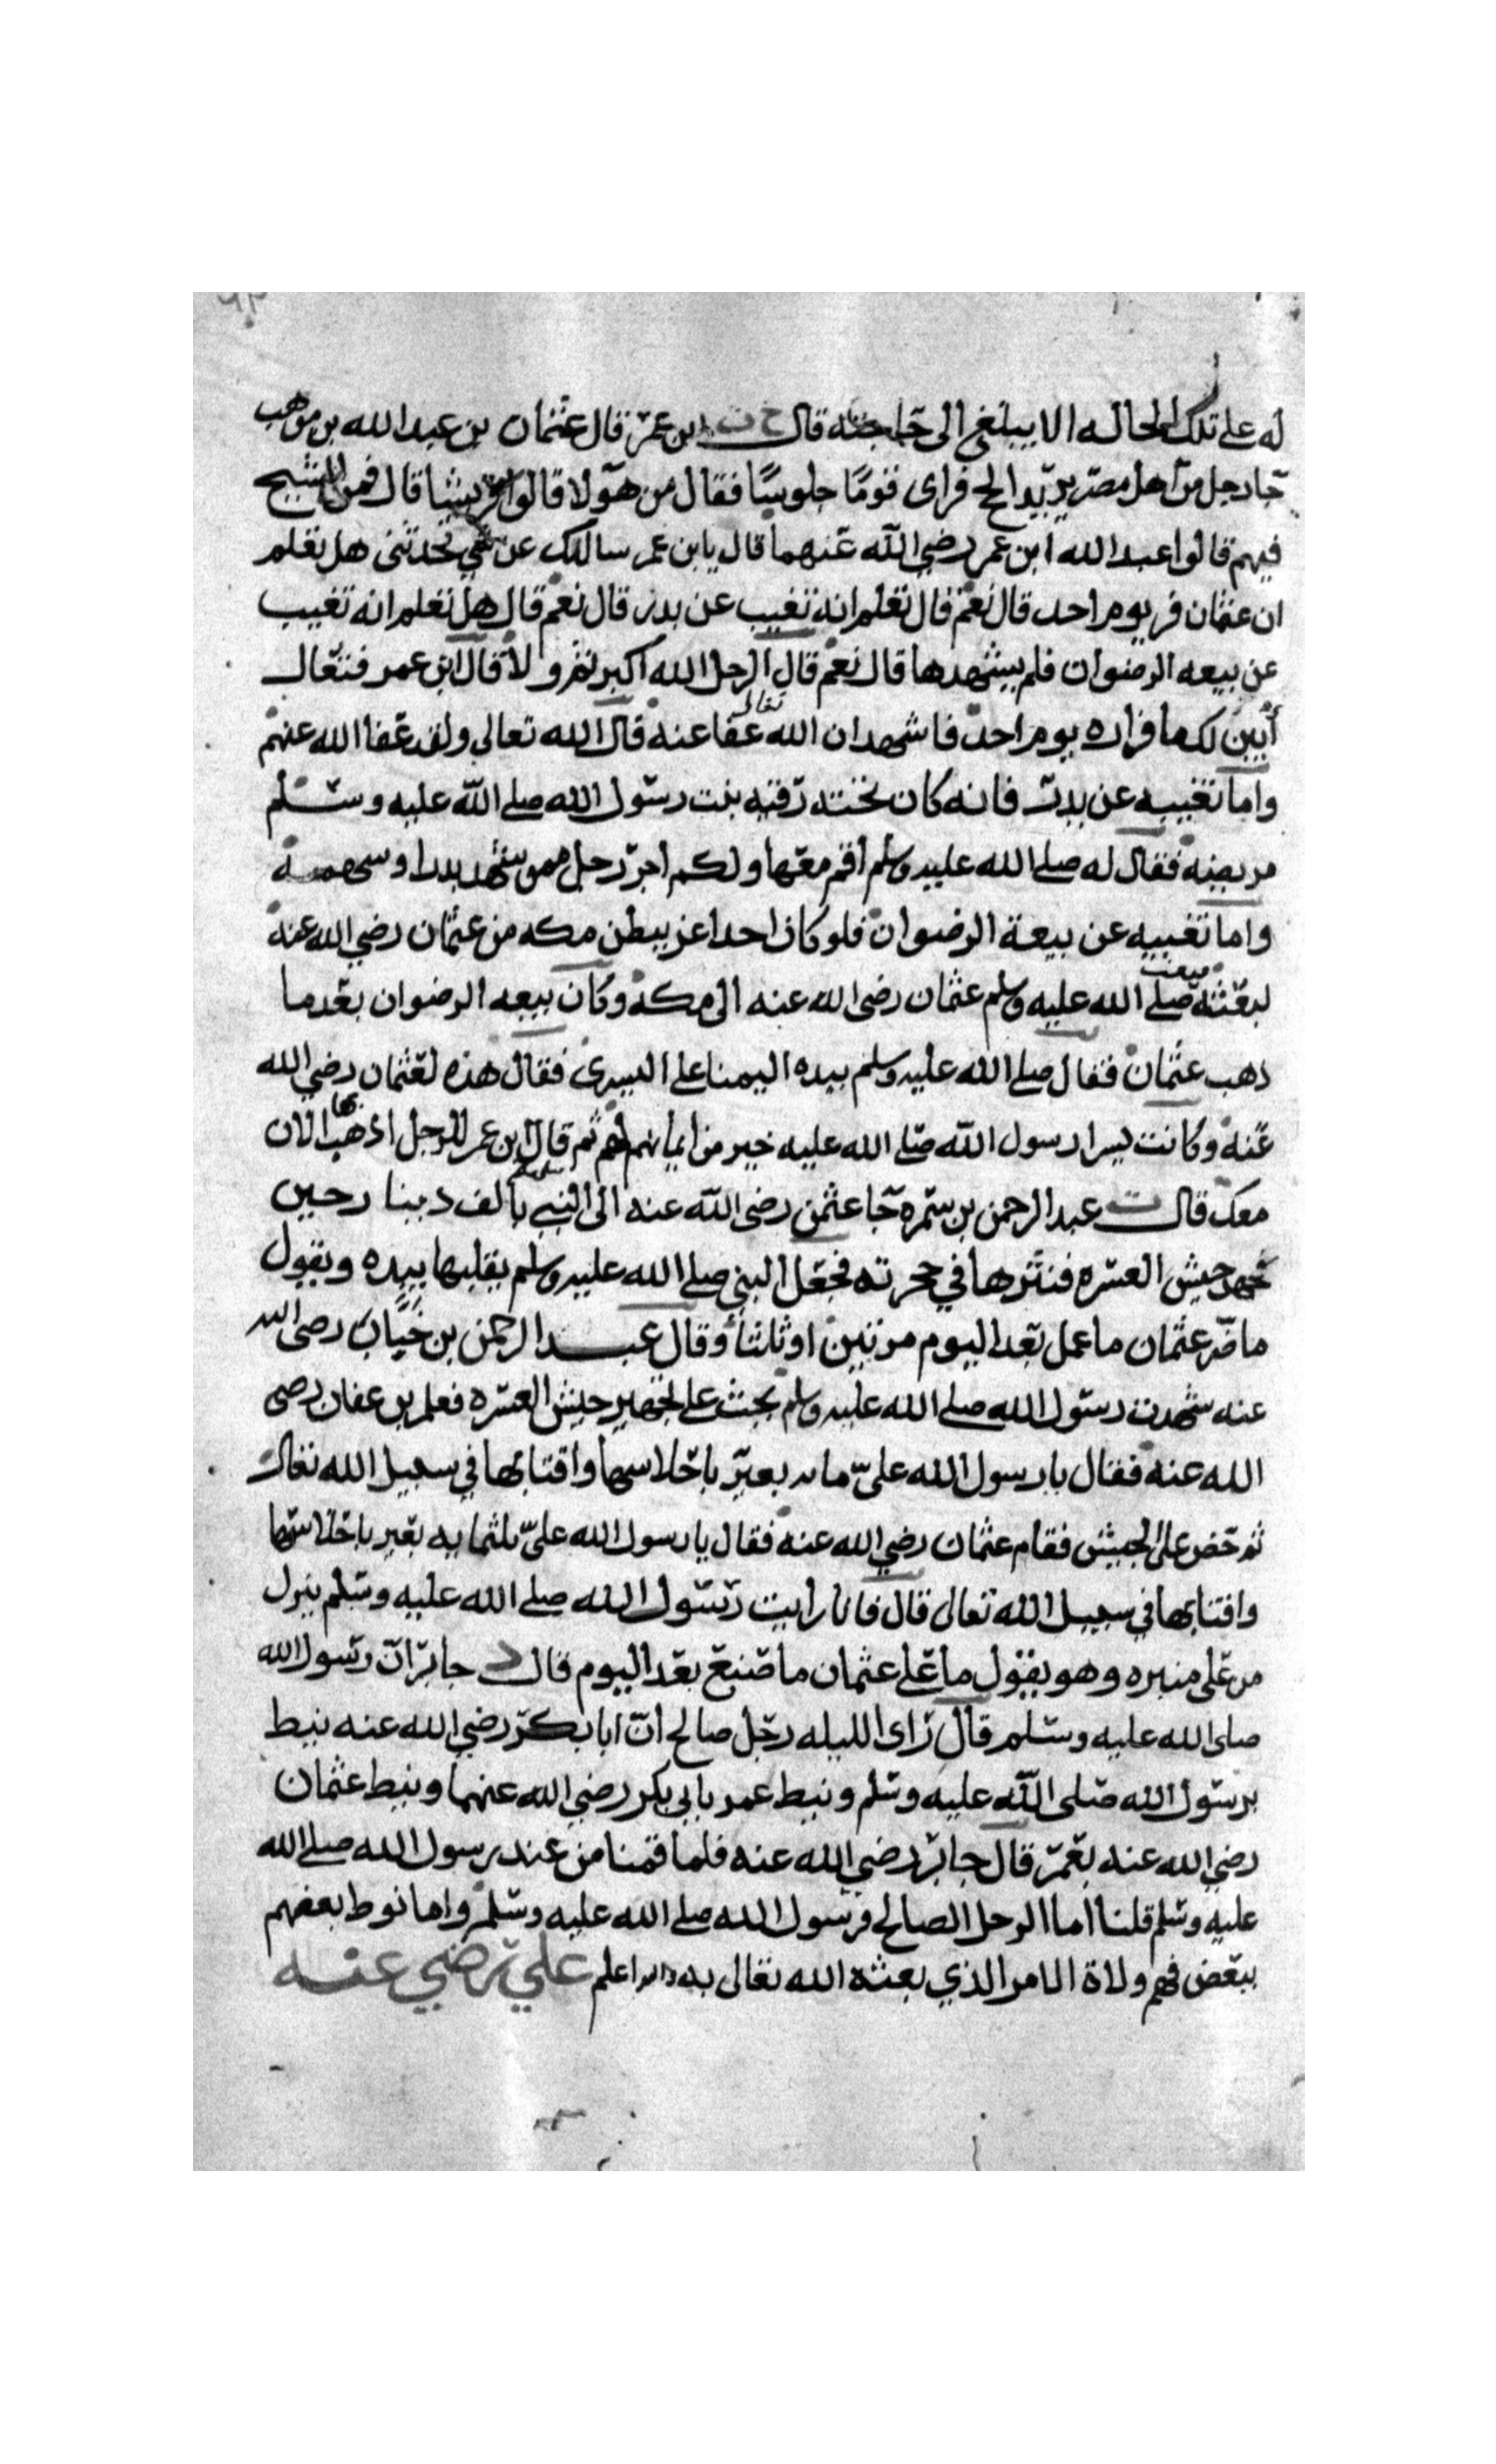 له على تلك الحاله الا يبلغ الى حاجته قال خ ت ابن عمر قال عثمان بن عبد الله بن موهب
جا رجل من اهل مصر يريد الحج فراى قومًا جلوسًا فقال من هولا قالوا قريشا قال فمن الشيخ
فيهم قالوا عبد الله ابن عمر رضي الله عنهما قال يا بن عمر سالك عن شي تحدثنى هل تعلم
ان عثمان فر يوم احد قال نعم قال تعلم انه تغيب عن بدر قال نعم قال هل تعلم انه تغيب
عن بيعه الرضوان فلم يشهدها قال نعم قال الرجل الله اكبر ثم ولا قال ابن عمر فتعال
أبين لك ما فراره يوم احد فاشهد ان الله تعالى عفا عنه قال الله تعالى ولقد عفا الله عنهم
واما تغيبه عن بدر فانه كان تحته رقيه بنت رسول الله صلى الله عليه وسلم
مريضه فقال له صلى الله عليه وسلم اقم معها ولكم اجر رجل ممن شهد بدرا وسهمه
واما تغيبه عن بيعة الرضوان فلو كان احدا عز ببطن مكه من عثمان رضي الله عنه
لبعثه صلى الله عليه وسلم عثمان رضى الله عنه الى مكه وكان بيعه الرضوان بعد ما
ذهب عثمان فقال صلى الله عليه وسلم بيده اليمنا على اليسرى فقال هذه لعثمان رضي الله
عنه وكانت يسرا رسول الله صلى الله عليه خير من ايمانهم لهم ثم قال ابن عمر للرجل اذهب بها الان
معك قال ت عبد الرحمن بن سمره جا عثمن رضى الله عنه الى النبي بالف دينار حين
تجهز جيش العسره فنثرها في حجرته فجعل النبي صلى الله عليه وسلم يقلبها بيده ويقول
ما ضر عثمان ما عمل بعد اليوم مرتين او ثلثا وقال عبد الرحمن بن خبّاب رضى الله
عنه شهدت رسول الله صلى الله عليه وسلم يحث على تجهيز جيش العسره فعلم بن عفان رضى
الله عنه فقال يا رسول الله عليّ مايه بعير باحلاسها واقتابها في سبيل الله تعالى
ثم حض على الجيش فقام عثمان رضي الله عنه فقال يا رسول الله عليّ ثلثمايه بعير باحلاسها
واقتابها في سبيل الله تعالى قال فانا رايت رسول الله صلى الله عليه وسلم ينزل
من على منبره وهو يقول ما على عثمان ما صنع بعد اليوم قال د جابر ان رسول الله
صلى الله عليه وسلم قال راى الليله رجل صالح ان ابا بكر رضي الله عنه نيط
برسول الله صلى الله عليه وسلم ونيط عمر بابي بكر رضي الله عنهما ونيط عثمان
رضي الله عنه بعمر قال جابر رضي الله عنه فلما قمنا من عند رسول الله صلى الله
عليه وسلم قلنا اما الرجل الصالح فرسول الله صلى الله عليه وسلم واما نوط بعضهم
ببعض فهم ولاة الامر الذي بعثه الله تعالى به والله اعلم علي رضي عنه